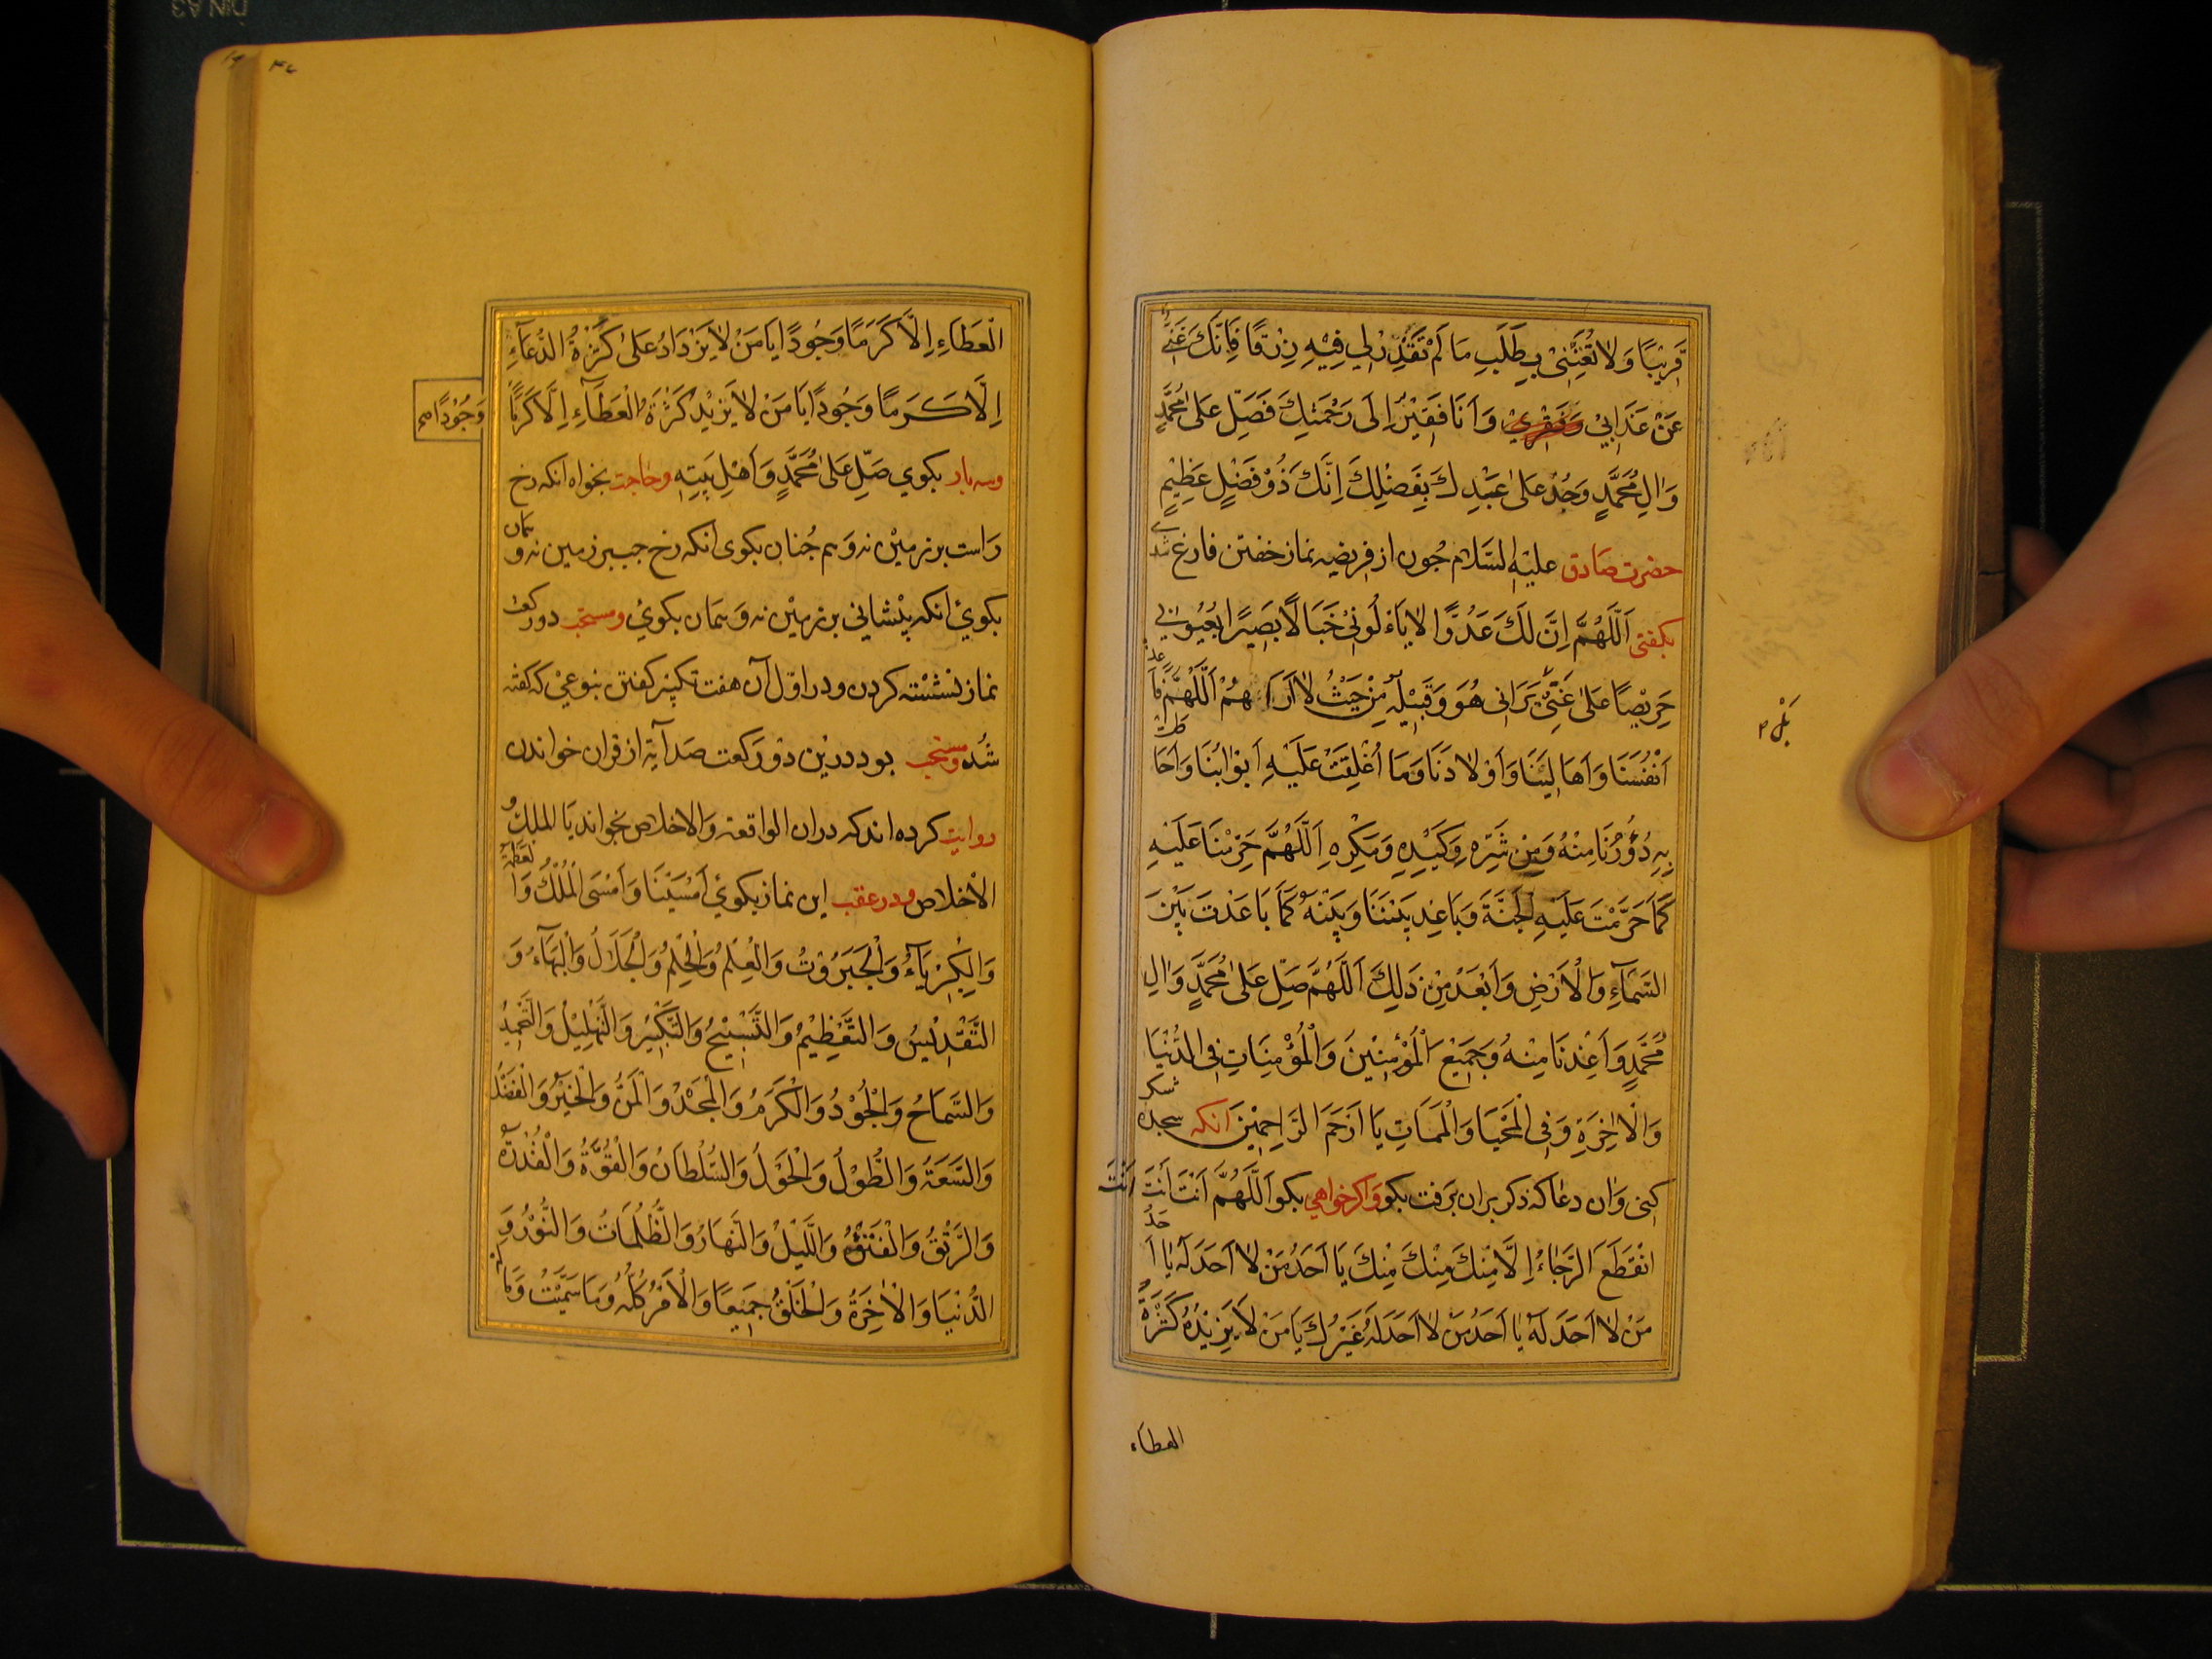 قَرِيْبًا وَلَا تُعَنِّنِيْ بِطَلَبِ مَا لَمْ تُقَدِّرْ لِي فِيْهِ رِزْقًا فَاِنَّكَ غَنِيٌّ
عَنْ عَذَابِيْ وَفَقْرِيْ وَاَنَا فَقِيْرٌ اِلَى رَحْمَتِكَ فَصَلِّ عَلَى مُحَمَّدٍ
وَاٰلِ مُحَمَّدٍ وَجُدْ عَلَى عَبْدِكَ بِفَضْلِكَ اِنَّكَ ذُوْ فَضْلٍ عَظِيْمٍ
حضرت صادق عليه السلام چون از فريضه نماز خفتن فارغ شدى
بكفتى اَللّٰهُمَّ اِنَّ لَكَ عَدُوًّا لَا يَاْءلُونِيْ خَبَالًا بَصِيْرًا بِعُيُوبِي
حَرِيْصًا عَلَى غَيِّيْ يَرَانِى هُوَ وَقَبِيْلُهُ مِنْ حَيْثُ لَا اَرَاهُمْ اَللّٰهُمَّ فَاَعِذْ
اَنْفُسَنَا وَاَهَالِيَنَا وَاَوْلَادَنَا وَمَا اُغْلِقَتْ عَلَيْهِ اَبْوَابُنَا وَاَحَاطَتْ
بِهِ دُوْرُنَا مِنْهُ وَمِنْ شَرِّهِ وَكَيْدِهِ وَمَكْرِهِ اَللّٰهُمَّ حَرِّمْنَا عَلَيْهِ
كَمَا حَرَّمْتَ عَلَيْهِ الْجَنَّةَ وَبَاعِدْ بَيْنَنَا وَبَيْنَهُ كَمَا بَاعَدْتَ بَيْنَ
السَّمَآءِ وَالْاَرْضِ وَاَبْعَدَ مِنْ ذَلِكَ اَللّٰهُمَّ صَلِّ عَلَى مُحَمَّدٍ وَاٰلِ
مُحَمَّدٍ وَاَعِذْنَا مِنْهُ وَجَمِيْعَ الْمُؤْمِنِيْنَ وَالْمُؤْمِنَاتِ فِي الدُّنْيَا
وَالْاٰخِرَةِ وَفِى الْمَحْيَا وَالْمَمَاتِ يَا اَرْحَمَ الرَّاحِمِيْنَ انكه سجده شكر
كنى وان دعا كه ذكر بران برفت بكو واكر خواهى بكو اَللّٰهُمَّ اَنْتَ اَنْتَ اَنْتَ
انْقَطَعَ الرَّجَاءُ اِلَّا مِنْكَ مِنْكَ مِنْكَ يَا اَحَدُ مَنْ لَا اَحَدَ لَهُ يَا اَحَدُ
مَنْ لَا اَحَدَ لَهُ يَا اَحَدُ مَنْ لَا اَحَدَ لَهُ غَيْرُكَ يَا مَنْ لَا يَزِيْدُهُ كَثْرَةُ
العطاء
الْعَطَاءِ اِلَّا كَرَمًا وَجُودًا يَا مَنْ لَا يَزْدَادُ عَلَى كَثْرَةِ الدُّعَآءِ
اِلَّا كَرَمًا وَجُودًا يَا مَنْ لَا يَزِيْدُ كَثْرَةُ الْعَطَآءِ اِلَّا كَرَمًا
وَجُوْدًا صح
وسه بار بكوي صَلِّ عَلَى مُحَمَّدٍ وَاَهْلِ بَيْتِهِ وحاجت بخواه انكه رخ
راست بر زمين نه وهم چنان بكوى انكه رخ چپ بر زمين نه وهمان
بكوئ انكه پيشانى بر زمين نه وهمان بكوي ومستحب دو ركعت
نماز نشسته كردن ودر اوّل آن هفت تكبير كفتن بنوعى كه كفته
شده ومستحب بود درين دو ركعت صد آية از قران خواندن
روايت كرده اند كه دران الواقعه والاخلاص بخواند يا الملك و
الاخلاص ودر عقب اين نماز بكوي اَمْسَيْنَا وَاَمْسَى الْمُلْكُ وَالْعَظَمَةُ
وَالْكِبْرِيَآءُ وَالْجَبَرُوْتُ وَالْعِلْمُ وَالْحِلْمُ وَالْجَلَالُ وَالْبَهَآءُ وَ
التَّقْدِيْسُ وَالتَّعْظِيْمُ وَالتَّسْبِيْحُ وَالتَّكْبِيْرُ وَالتَّهْلِيْلُ وَالتَّحْمِيْدُ
وَالسَّمَاحُ وَالْجُوْدُ وَالْكَرَمُ وَالْمَجْدُ وَالْمَنُّ وَالْخَيْرُ وَالْفَضْلُ
وَالسَّعَةُ وَالطَّوْلُ وَالْحَوْلُ وَالسُّلْطَانُ وَالْقُوَّةُ وَالْقُدْرَةُ
وَالرَّتْقُ وَالْفَتْقُ وَاللَّيْلُ وَالنَّهَارُ وَالظُّلُمَاتُ وَالنُّوْرُ وَ
الدُّنْيَا وَالْاٰخِرَةُ وَالْخَلْقُ جَمِيعًا وَالْاَمْرُ كُلُّهُ وَمَا سَمَّيْتُ وَمَا لَمْ